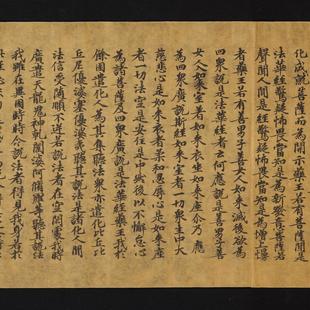 化成就菩薩而為開示藥王若有菩薩聞是
法華經驚疑怖畏當知是為新發意菩薩若
聲聞人聞是經驚疑怖畏當知是為增上慢
者藥王若有善男子善女人如來滅後欲為
四衆說是法華經者云何應說是善男子善
女人入如來室著如來衣坐如來座尒乃應
為四衆廣說斯經如來室者一切衆生中大
慈悲心是如來衣者柔和忍辱心是如來座
者一切法空是安住是中然後以不懈怠心
為諸菩薩及四衆廣說是法華經藥王我於
餘國遣化人為其集聽法衆亦遣化比丘比
丘尼優婆塞優婆夷聽其說法是諸化人聞
法信受隨順不逆若說法者在空閑處我時
廣遣天龍鬼神乾闥婆阿脩羅等聽其說法
我雖在異國時時令說法者得見我身若於